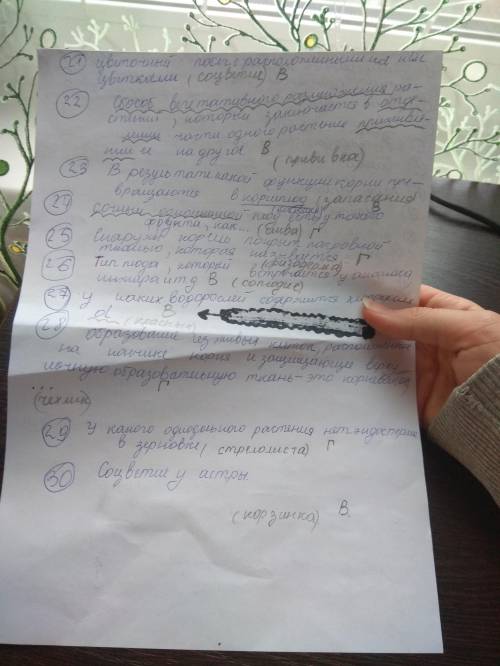 21 цветочный с расположенными на нем
цветками (соцветие) В
22 Способ вегетативного размножения ра-
стений, который заключается в
части одного растения
нии ее на другое В
(прививка)
23 В результате какой функции корни пре-
вращаются в корнеплод (запасания)
24 В
фрукта, как... (слива) Г
25 Снаружи корень покрыт покровной
тканью, которая наз-вается Г
26 Тип плода, который встречается у ананаса
инжира и т д В (соплодие)
27 У каких водорослей содержится
В
(красных)
28 образование из живых клеток, расположенное
на кончике корня и защищающее
образовательную ткань - это корневой
... Г
(чехлик)
29 У какого однодольного растения нет эндосперма
в зерновке (стрелолиста) Г
30 Соцветие у астры
(корзинка) В.